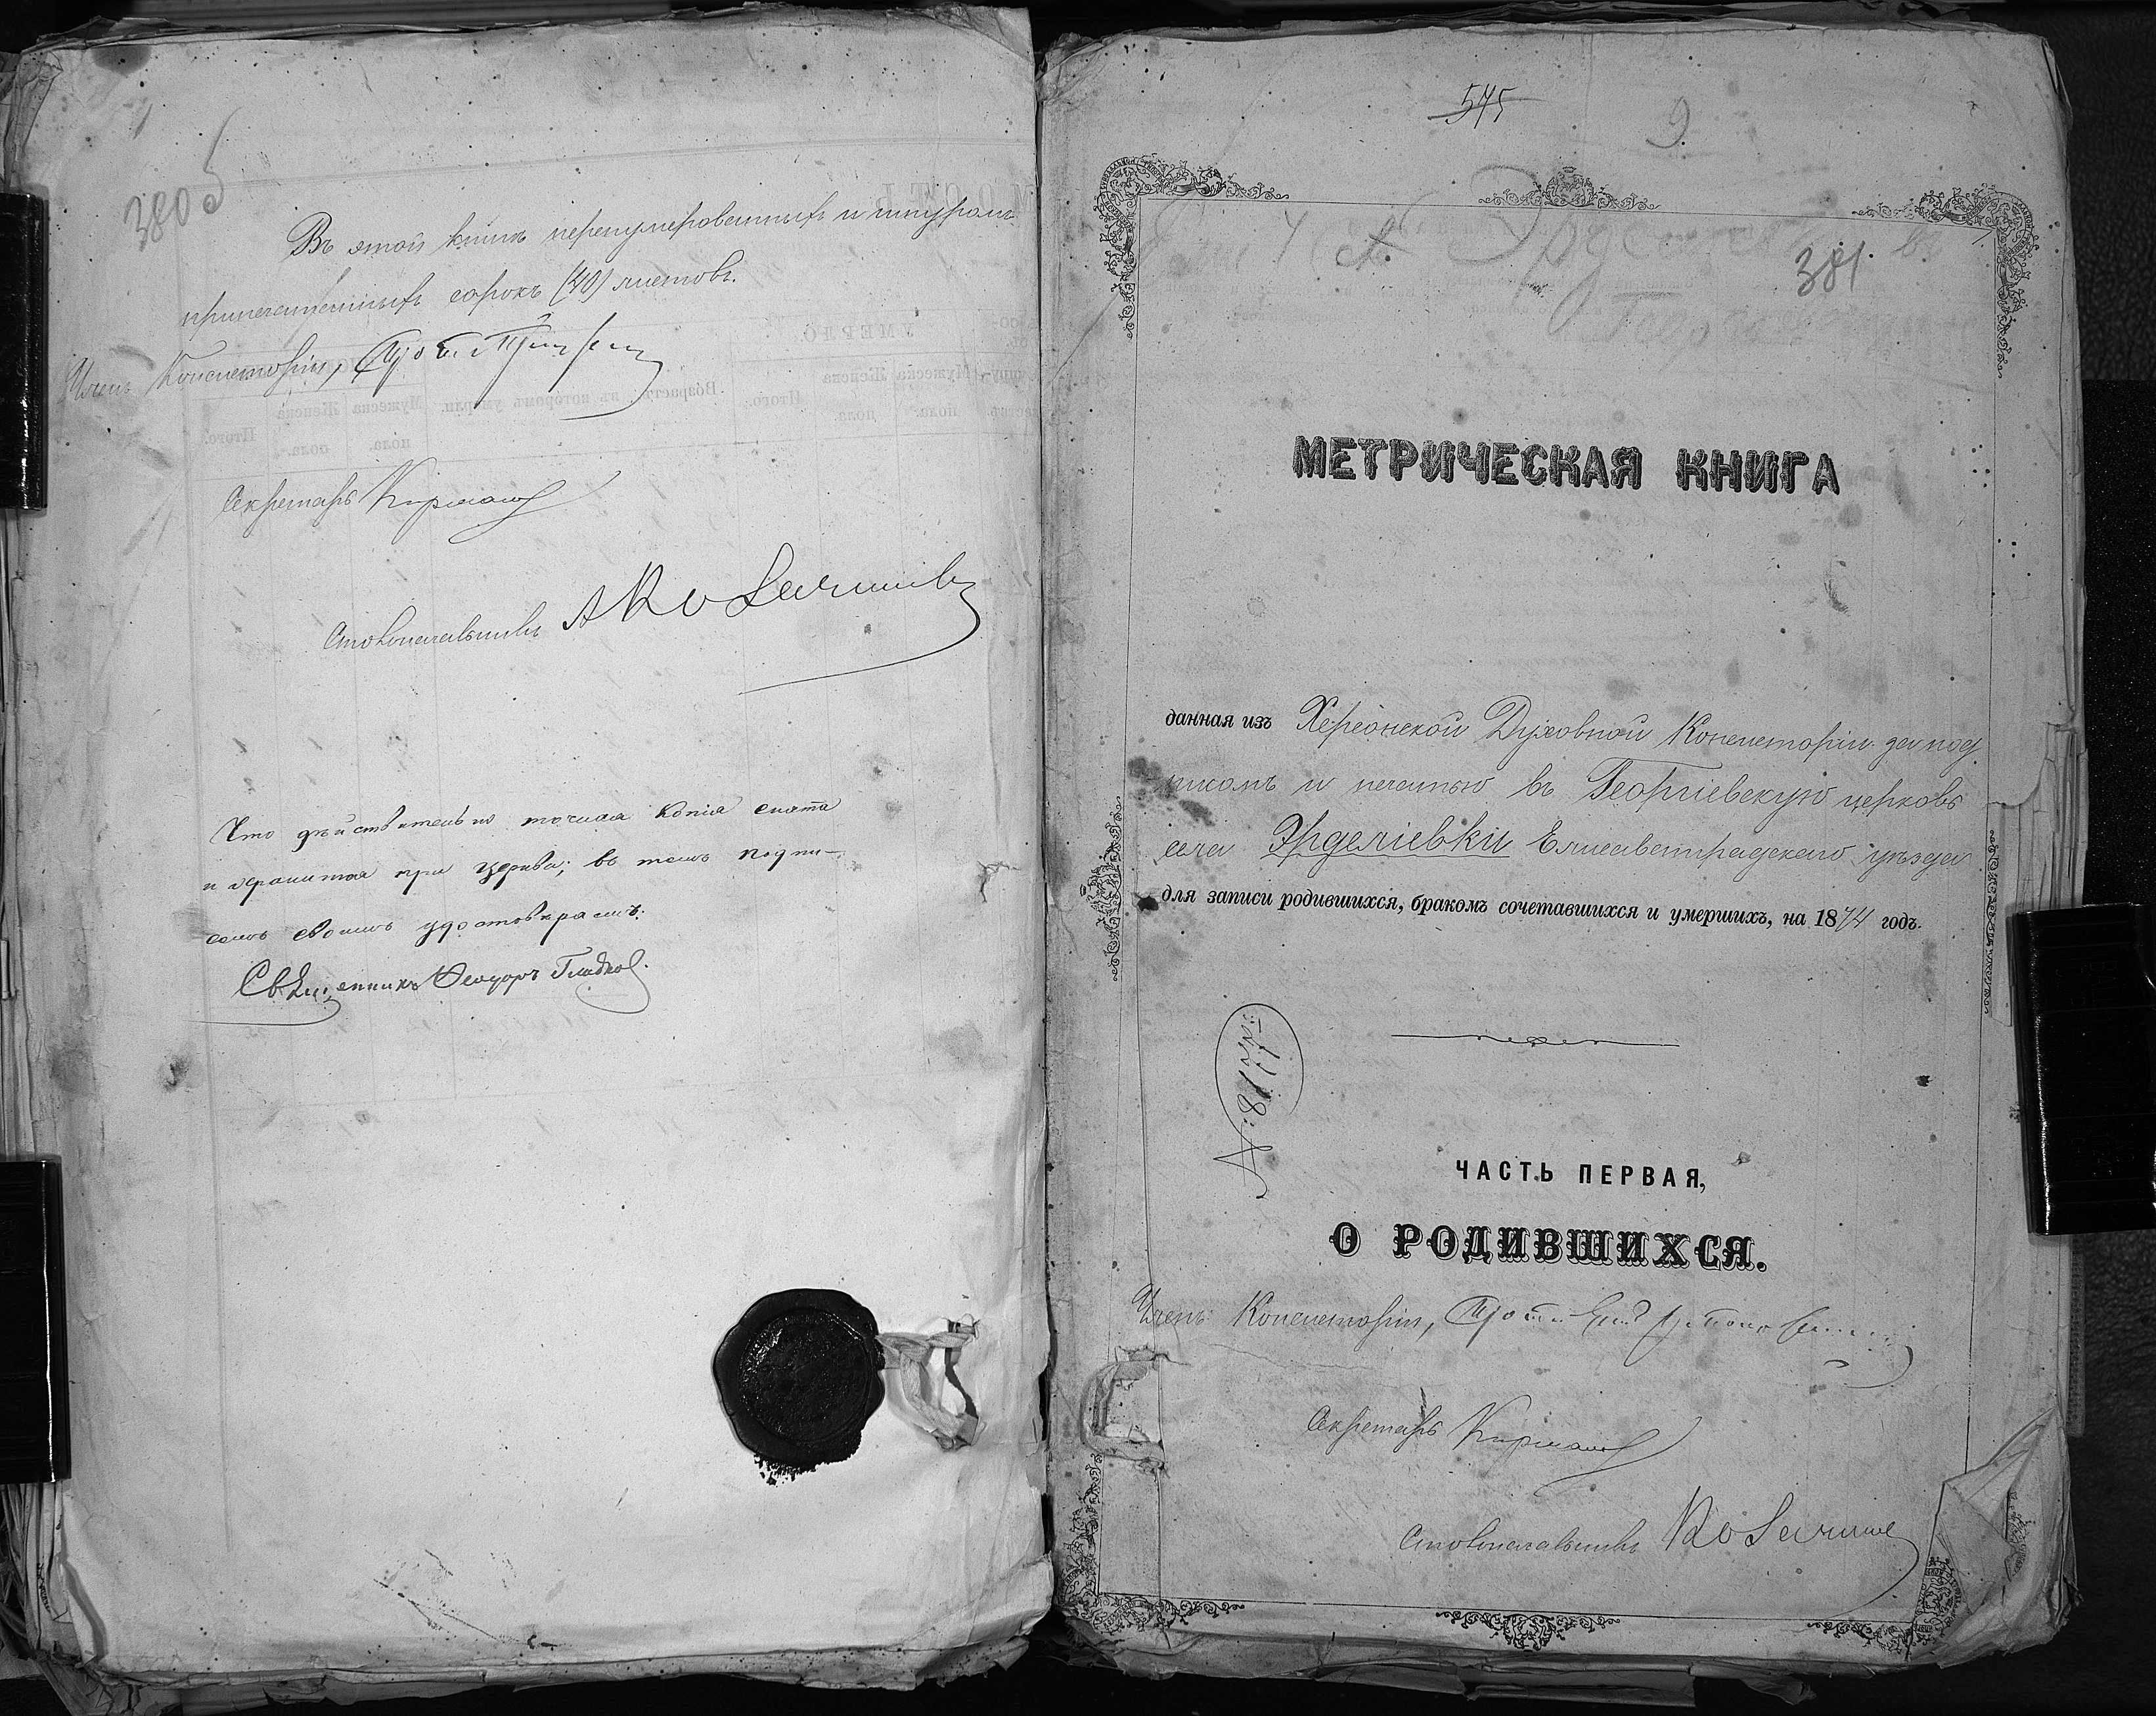 380 об
Въ этой книгѣ перенумерованныхъ и шнуромъ
припечатанныхъ сорокъ (40) листовъ.
Членъ Консисторіи,
Секретарь
Столоначальникъ
Что дѣйствительно точная копія снята
и хранится при церкви; въ томъ подпи-
сомъ своимъ удостовѣряемъ.
Священникъ Ѳеодоръ Гладков.
545
9.
381
МЕТРИЧЕСКАЯ КНИГА
данная изъ Херсонской Духовной Консисторіи за под
писомъ и печатью въ Георгіевскую церковь
села Эрделіевки Елисаветградскаго уѣзда
для записи родившихся, бракомъ сочетавшихся и умершихъ, на 1874 годъ.
ЧАСТЬ ПЕРВАЯ,
О РОДИВШИХСЯ.
Членъ Консисторіи,
Секретарь
Столоначальникъ